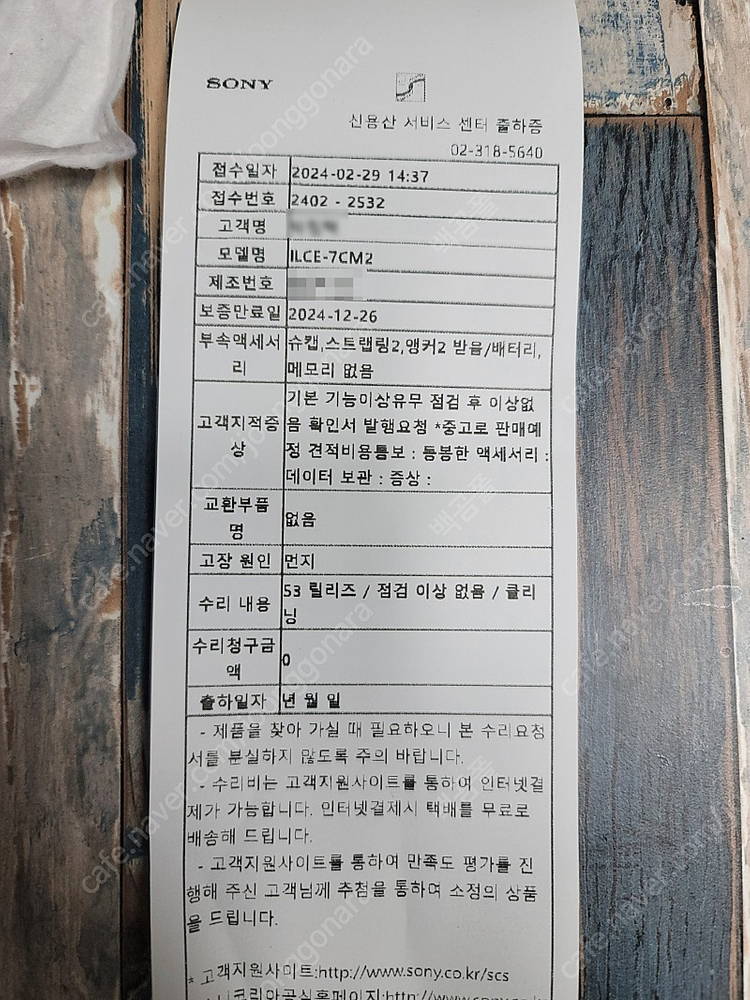 SONY
신용산 서비스 센터 출하증
02-318-5640
접수일자 2024-02-29 14:37
접수번호 2402 - 2532
고객명
모델명 ILCE-7CM2
제조번호
보증만료일 2024-12-26
부속액세서 슈캡,스트랩링2,앵커2 받음/배터리,
리 메모리 없음
기본 기능이상유무 점검 후 이상없
고객지적증 음 확인서 발행요청 *중고로 판매예
상 정 견적비용통보 : 동봉한 액세서리 :
데이터 보관 : 증상 :
교환부품
명 없음
고장 원인 먼지
수리 내용 53 릴리즈 / 점검 이상 없음 / 클리
닝
수리청구금
액 0
출하일자 년 월 일
- 제품을 찾아 가실 때 필요하오니 본 수리요청
서를 분실하지 않도록 주의 바랍니다.
- 수리비는 고객지원사이트를 통하여 인터넷결
제가 가능합니다. 인터넷결제시 택배를 무료로
배송해 드립니다.
- 고객지원사이트를 통하여 만족도 평가를 진
행해 주신 고객님께 추첨을 통하여 소정의 상품
을 드립니다.
* 고객지원사이트:http://www.sony.co.kr/scs
cafe.naver.com/joonggonara
백곰돌